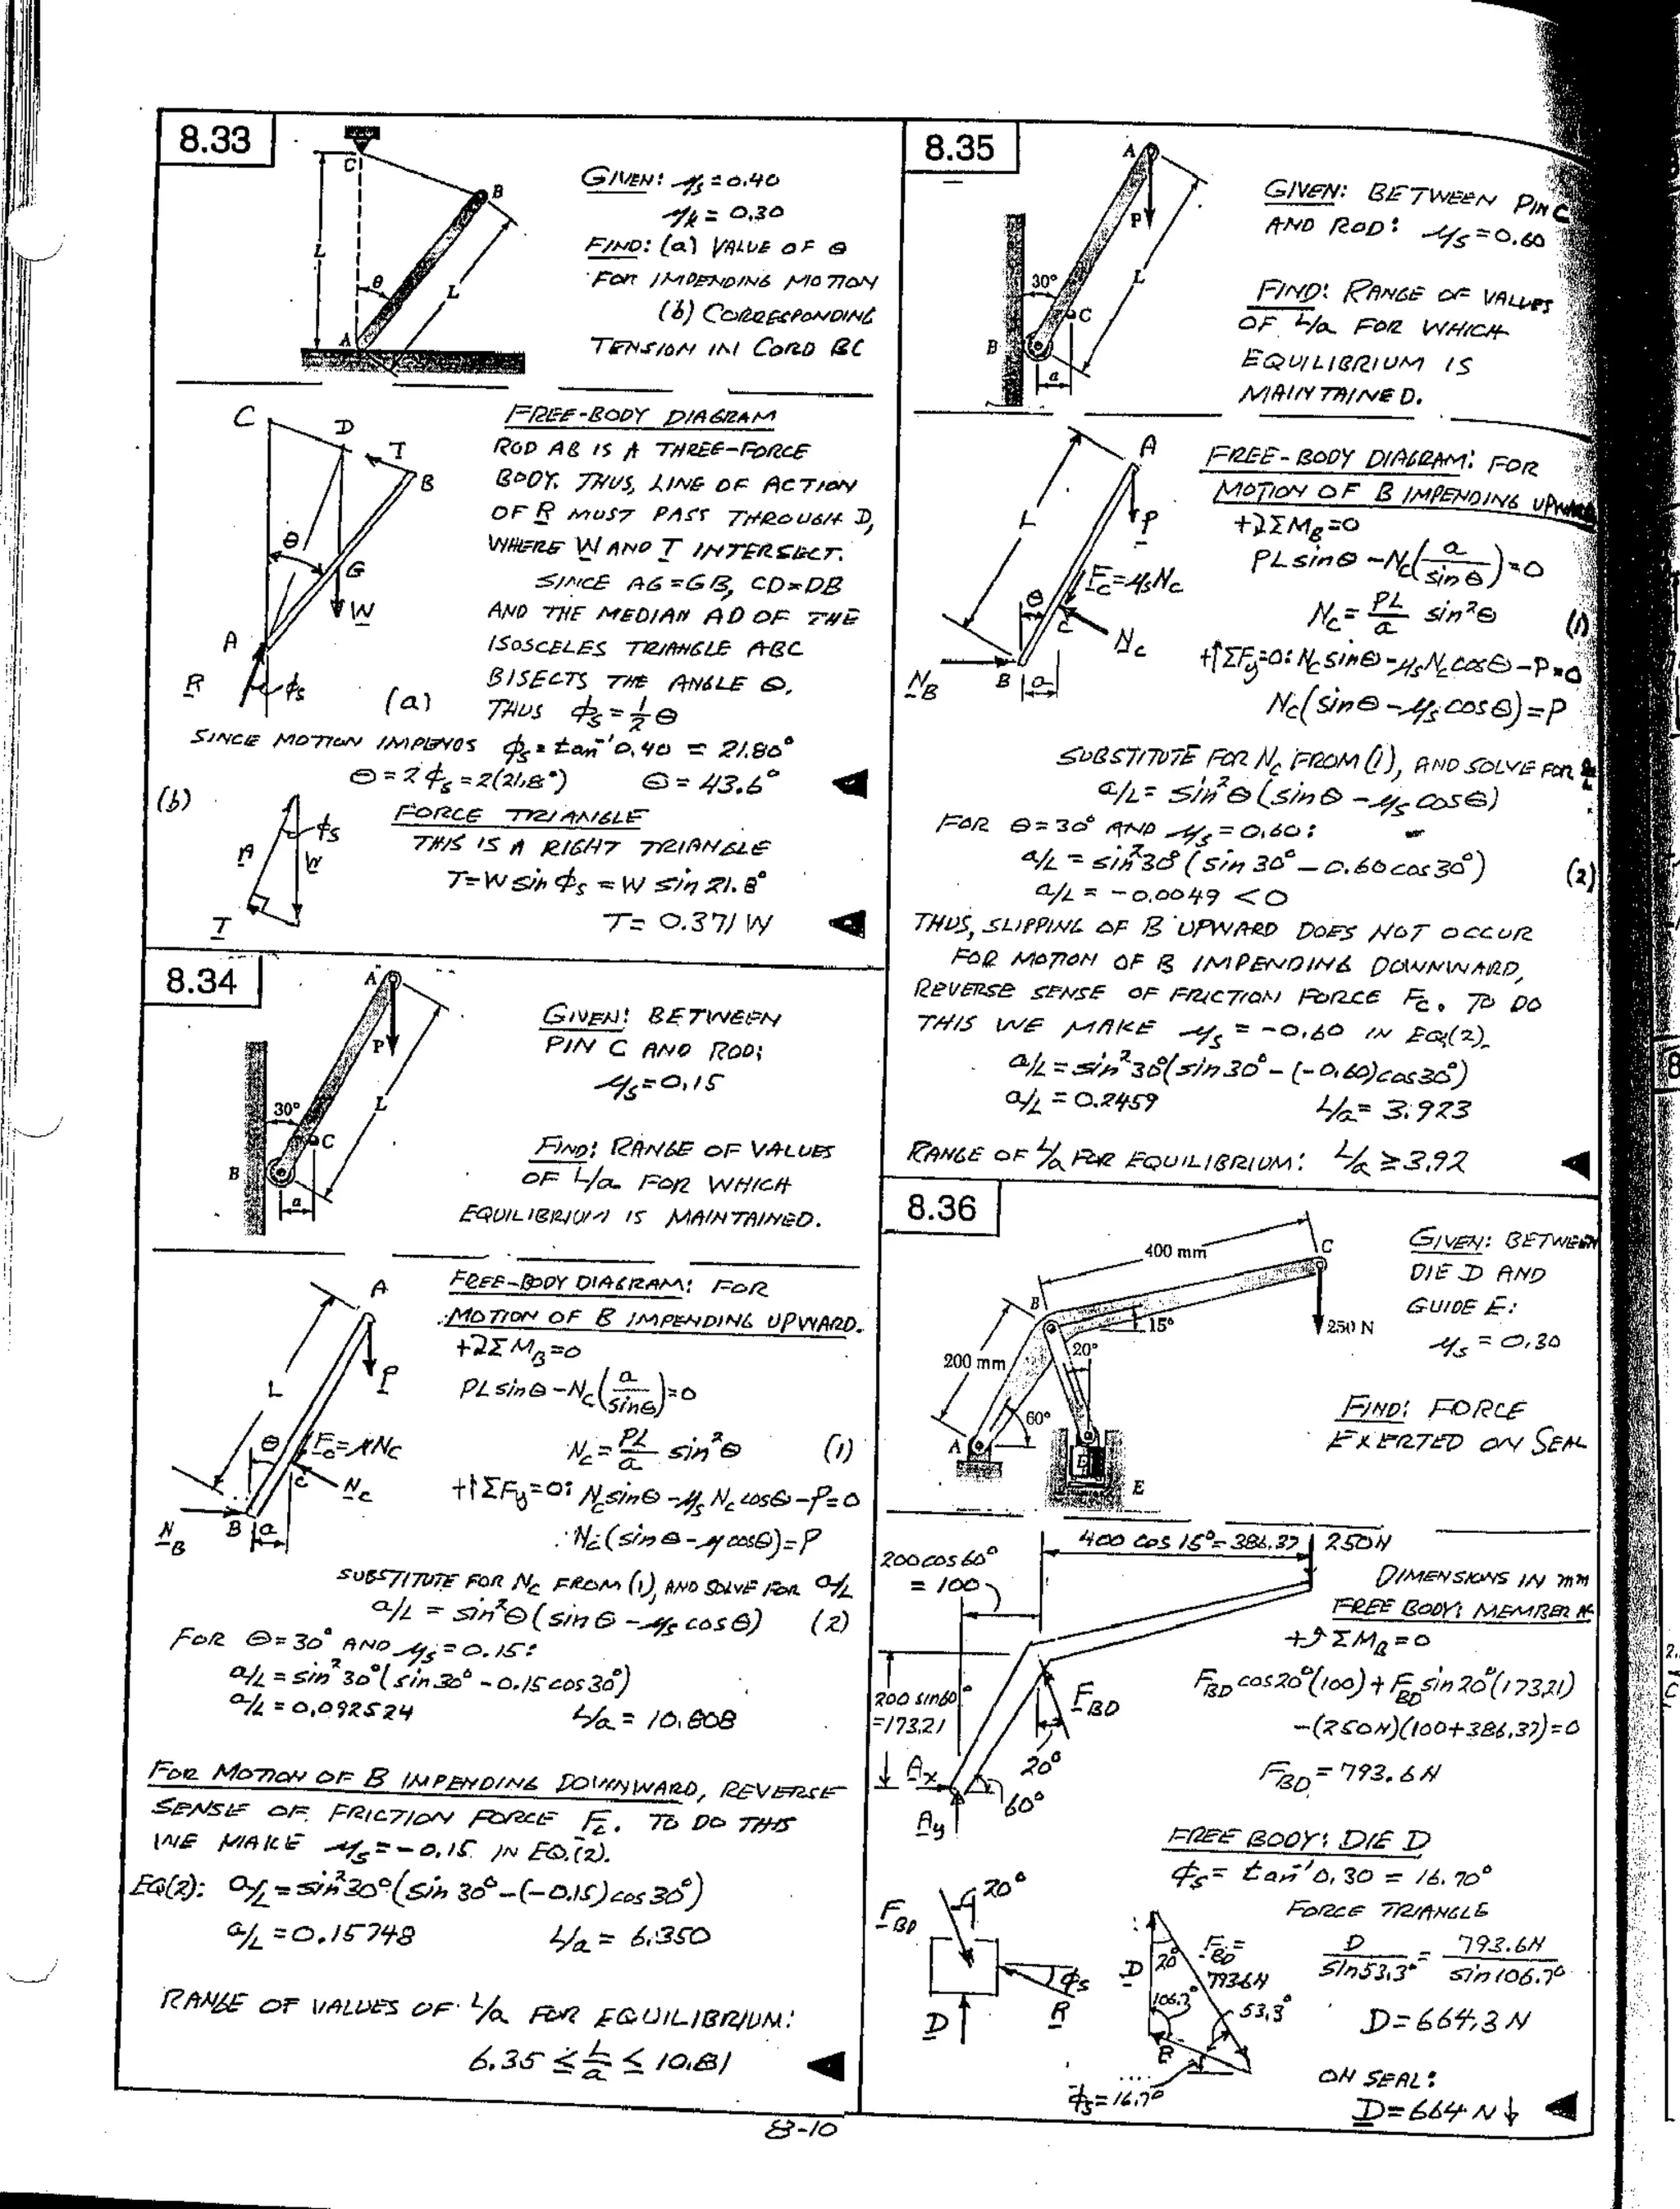 8.33
C
B
L
θ
L
A
GIVEN: μs = 0.40
μk = 0.30
FIND: (a) VALUE OF θ
FOR IMPENDING MOTION
(b) CORRESPONDING
TENSION IN CORD BC
C
D
T
B
θ
G
W
A
R
φs
FREE-BODY DIAGRAM
ROD AB IS A THREE-FORCE
BODY. THUS, LINE OF ACTION
OF R MUST PASS THROUGH D,
WHERE W AND T INTERSECT.
SINCE AG = GB, CD = DB
AND THE MEDIAN AD OF THE
ISOSCELES TRIANGLE ABC
BISECTS THE ANGLE θ.
(a) THUS φs = 1/2 θ
SINCE MOTION IMPENDS φs = tan⁻¹ 0.40 = 21.80°
θ = 2φs = 2(21.8°) θ = 43.6°
(b)
φs
W
T
FORCE TRIANGLE
THIS IS A RIGHT TRIANGLE
T = W sin φs = W sin 21.8°
T = 0.371 W
8.34
A
P
L
30°
C
B
a
GIVEN: BETWEEN
PIN C AND ROD:
μs = 0.15
FIND: RANGE OF VALUES
OF L/a FOR WHICH
EQUILIBRIUM IS MAINTAINED.
A
P
L
θ
Fc = μNc
C
Nc
NB
B
a
FREE-BODY DIAGRAM: FOR
MOTION OF B IMPENDING UPWARD.
+ΣMB = 0
PL sin θ - Nc (a/sin θ) = 0
Nc = PL/a sin²θ (1)
+↑ΣFy = 0: Nc sin θ - μs Nc cos θ - P = 0
Nc (sin θ - μ cos θ) = P
SUBSTITUTE FOR Nc FROM (1), AND SOLVE FOR a/L
a/L = sin²θ (sin θ - μs cos θ) (2)
FOR θ = 30° AND μs = 0.15:
a/L = sin²30° (sin 30° - 0.15 cos 30°)
a/L = 0.092524 L/a = 10.808
FOR MOTION OF B IMPENDING DOWNWARD, REVERSE
SENSE OF FRICTION FORCE Fc. TO DO THIS
WE MAKE μs = -0.15 IN EQ.(2).
EQ(2): a/L = sin²30° (sin 30° - (-0.15) cos 30°)
a/L = 0.15748 L/a = 6.350
RANGE OF VALUES OF L/a FOR EQUILIBRIUM:
6.35 ≤ L/a ≤ 10.81
8.35
A
P
L
30°
C
B
a
GIVEN: BETWEEN PIN C
AND ROD: μs = 0.60
FIND: RANGE OF VALUES
OF L/a FOR WHICH
EQUILIBRIUM IS
MAINTAINED.
A
P
L
θ
Fc = μsNc
C
Nc
NB
B
a
FREE-BODY DIAGRAM: FOR
MOTION OF B IMPENDING UPWARD
+ΣMB = 0
PL sin θ - Nc (a/sin θ) = 0
Nc = PL/a sin²θ (1)
+↑ΣFy = 0: Nc sin θ - μs Nc cos θ - P = 0
Nc (sin θ - μs cos θ) = P
SUBSTITUTE FOR Nc FROM (1), AND SOLVE FOR
a/L = sin²θ (sin θ - μs cos θ)
FOR θ = 30° AND μs = 0.60:
a/L = sin²30° (sin 30° - 0.60 cos 30°) (2)
a/L = -0.0049 < 0
THUS, SLIPPING OF B UPWARD DOES NOT OCCUR
FOR MOTION OF B IMPENDING DOWNWARD,
REVERSE SENSE OF FRICTION FORCE Fc. TO DO
THIS WE MAKE μs = -0.60 IN EQ(2).
a/L = sin²30° (sin 30° - (-0.60) cos 30°)
a/L = 0.2459 L/a = 3.923
RANGE OF L/a FOR EQUILIBRIUM: L/a ≥ 3.92
8.36
400 mm
C
B
15°
250 N
20°
200 mm
60°
A
D
E
GIVEN: BETWEEN
DIE D AND
GUIDE E:
μs = 0.30
FIND: FORCE
EXERTED ON SEAL
400 cos 15° = 386.37
250N
200 cos 60°
= 100
200 sin 60°
= 173.21
FBD
20°
Ax
60°
Ay
DIMENSIONS IN mm
FREE BODY: MEMBER
+ΣMA = 0
FBD cos 20° (100) + FBD sin 20° (173.21)
-(250N)(100 + 386.37) = 0
FBD = 793.6 N
FREE BODY: DIE D
φs = tan⁻¹ 0.30 = 16.70°
FORCE TRIANGLE
FBD
20°
φs
R
D
D
20°
FBD =
793.6N
106.7°
53.3°
R
φs = 16.7°
D/sin 53.3° = 793.6N/sin 106.7°
D = 664.3 N
ON SEAL:
D = 664 N ↓
8-10
8